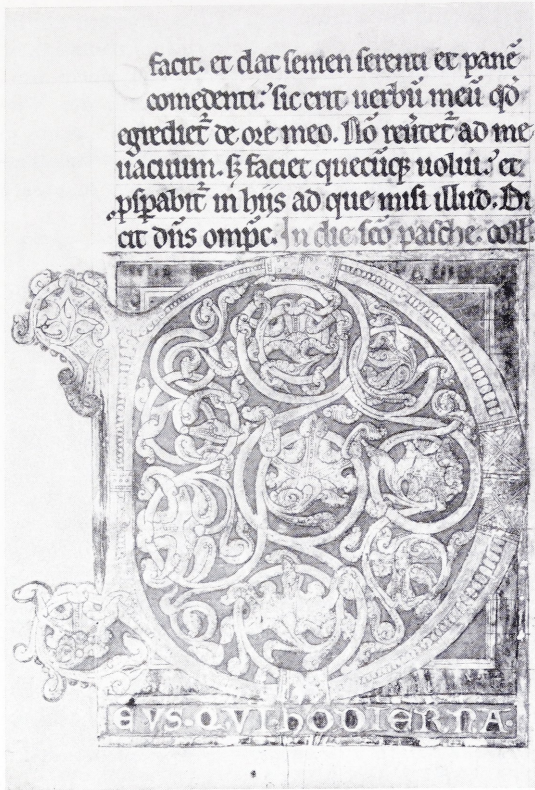 facit. et dat semen serenti et panē
comedenti: sic erit uerbū meū qd̄
egrediet᷑ de ore meo. Nō reūtet᷑ ad me
uacuum. s̄ꝫ faciet quecūqꝫ uolui: et
ꝓspabit᷑ in hiis ad que misi illud. Di
cit dn̄s omp̄c. In die sc̄o pasche. coll̄.
D
EVS. QVI hODIERNA.